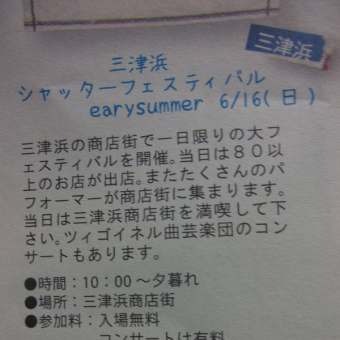 三津浜
三津浜
シャッターフェスティバル
earysummer 6/16(日)
三津浜の商店街で一日限りの大フ
ェスティバルを開催。当日は80以
上のお店が出店。またたくさんのパ
フォーマーが商店街に集まります。
当日は三津浜商店街を満喫して下
さい。ツィゴイネル曲芸楽団のコン
サートもあります。
●時間：10：00〜夕暮れ
●場所：三津浜商店街
●参加料：入場無料
コンサートは有料